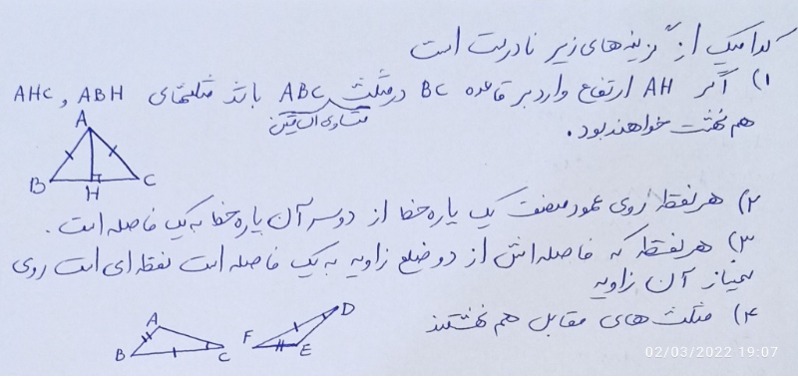 کدامیک از گزینه‌های زیر نادرست است
۱) اگر AH ارتفاع وارد بر قاعده BC در مثلث ABC باشد مثلثهای ABH و AHC
متساوی الساقین
هم نهشت خواهند بود.
A
B
H
C
۲) هر نقطه روی عمود منصف یک پاره خط از دو سر آن پاره خط به یک فاصله است.
۳) هر نقطه که فاصله اش از دو ضلع زاویه به یک فاصله است نقطه ای است روی
نیمساز آن زاویه
۴) مثلث های مقابل هم نهشتند
A
B
C
D
F
E
02/03/2022 19:07